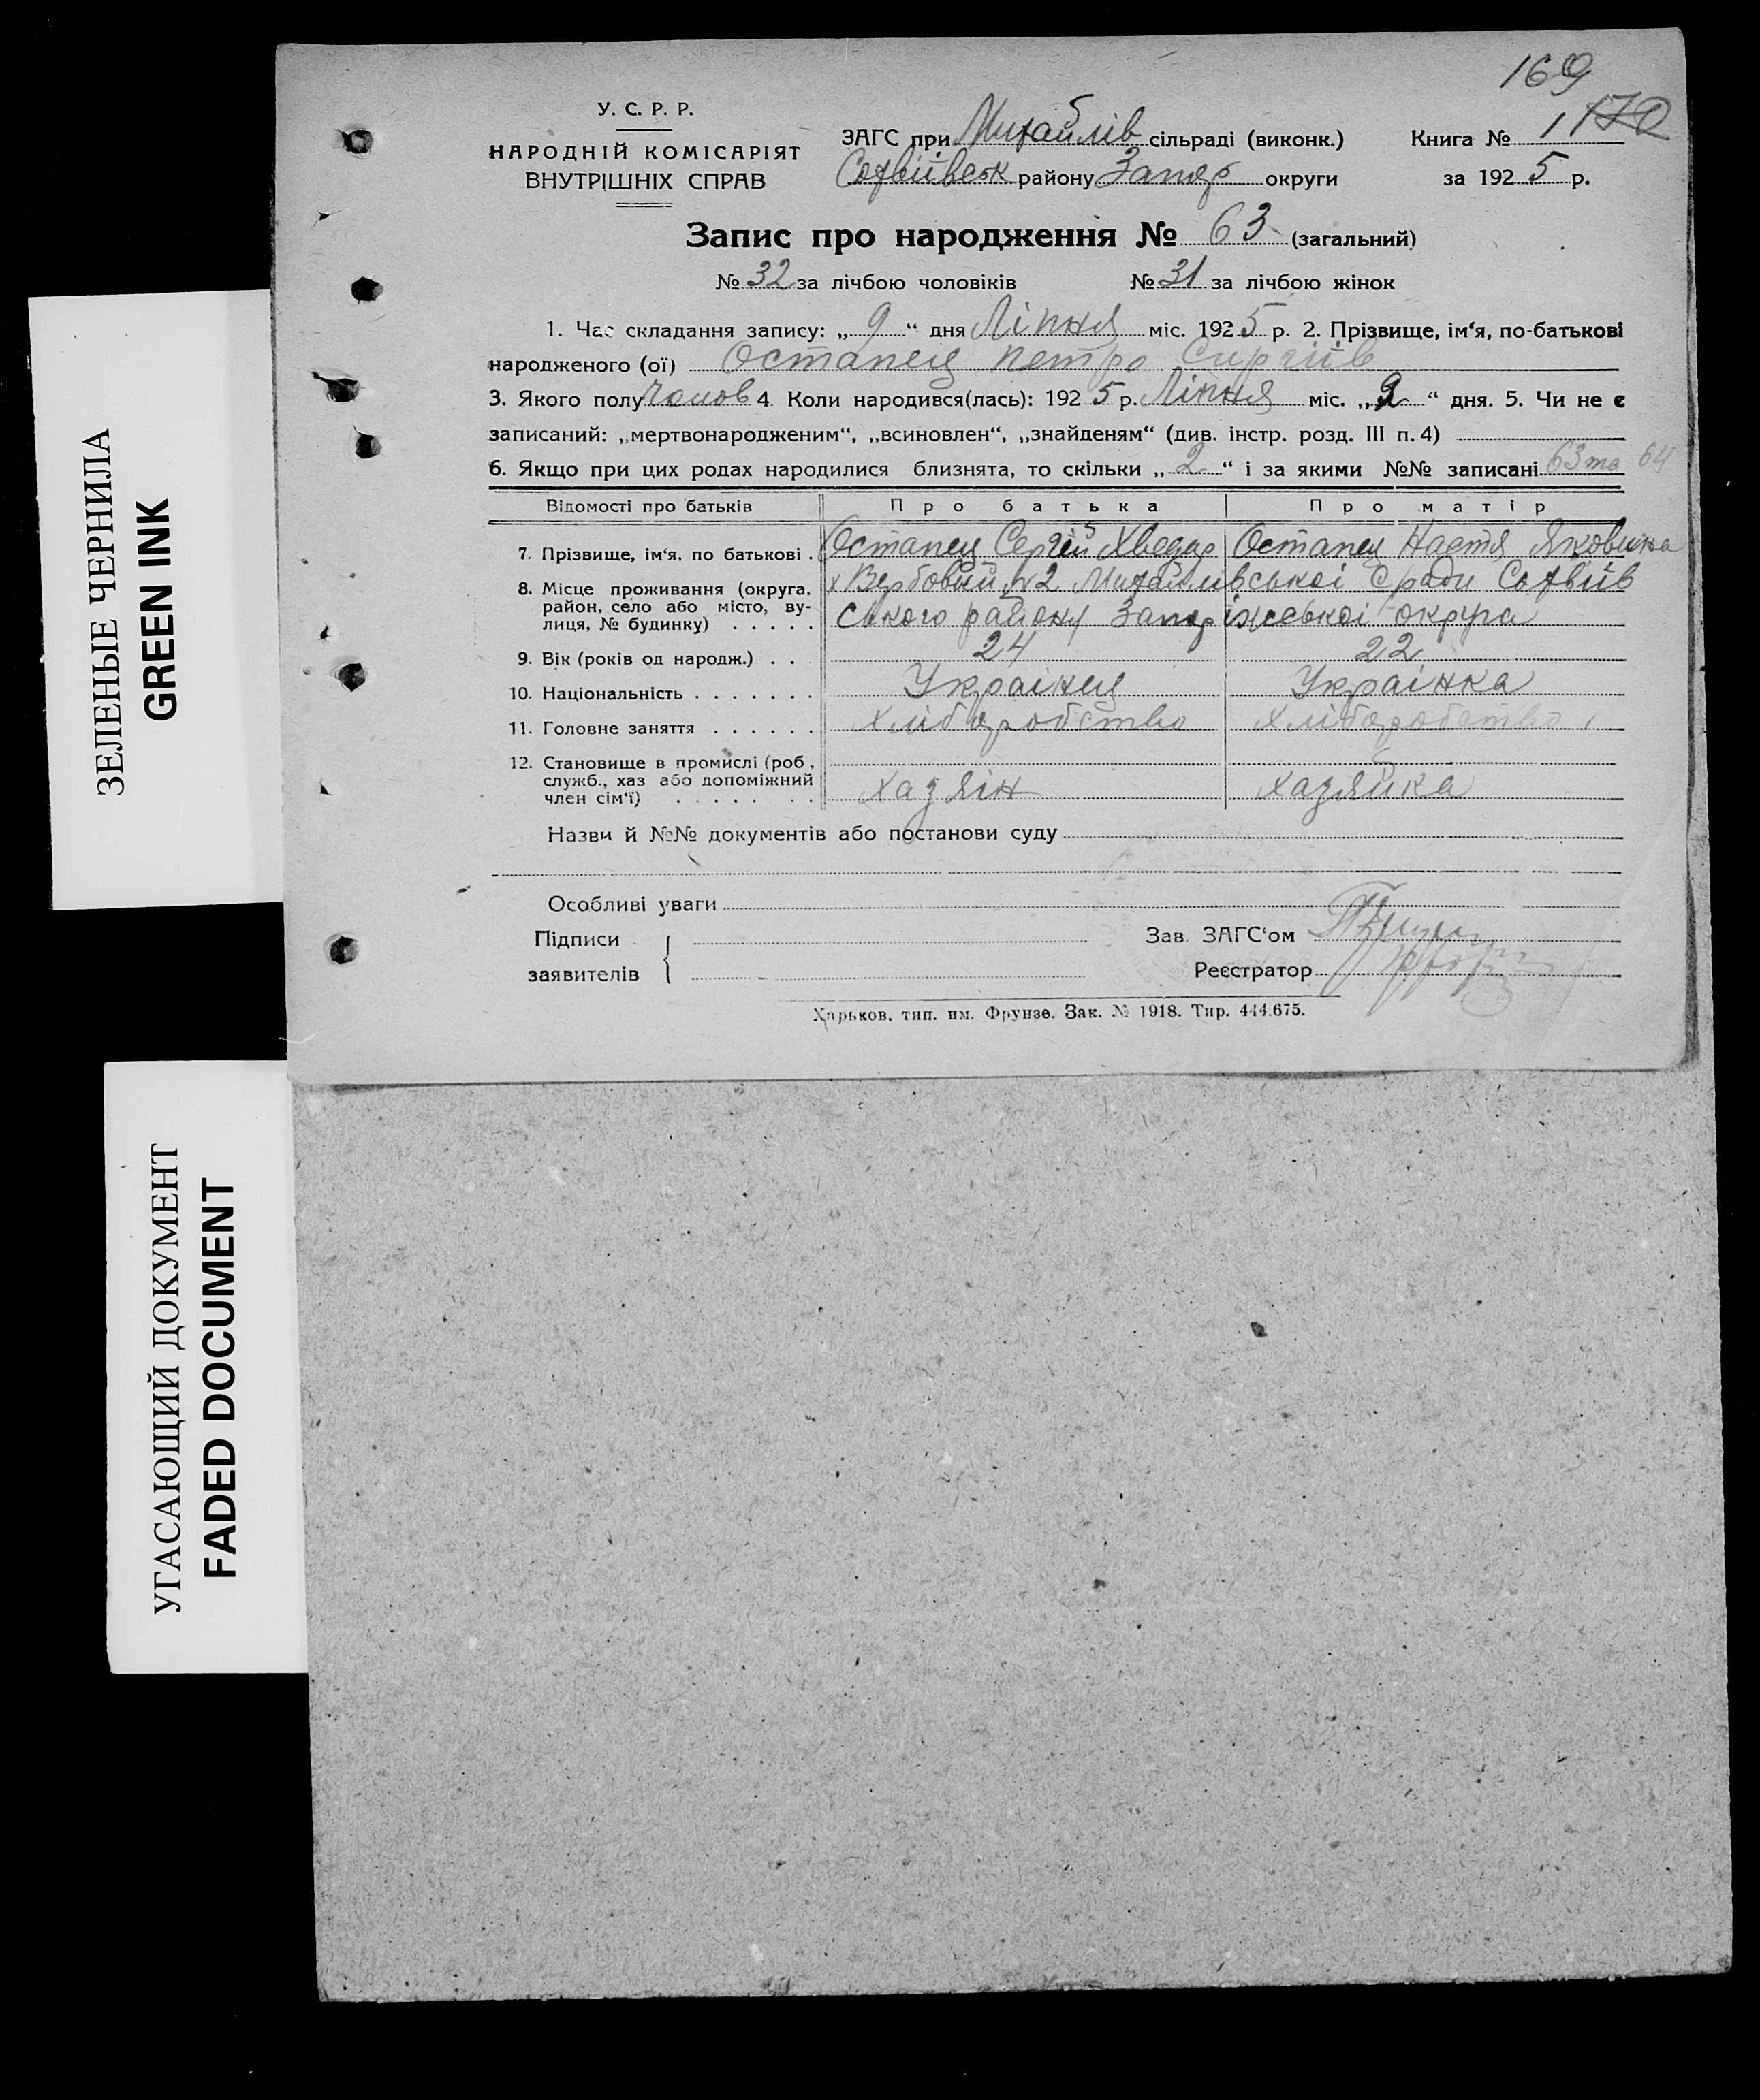 169
170
У. С. Р. Р.
НАРОДНІЙ КОМІСАРІЯТ
ВНУТРІШНІХ СПРАВ
ЗАГС при Михайлів сільраді (виконк.) Книга № 1
Софіївськ району Запор округи за 1925 р.
Запис про народження № 63 (загальний)
№ 32 за лічбою чоловіків № 31 за лічбою жінок
1. Час складання запису: „ 9 “ дня Ліпня міс. 1925 р. 2. Прізвище, ім‘я, по-батькові
народженого (ої) Остапец Петро Сиргіїв
3. Якого полу чолов 4. Коли народився(лась): 1925 р. Ліпня міс. „ 2 “ дня. 5. Чи не є
записаний: „мертвонародженим“, „всиновлен“, „знайденям“ (див. інстр. розд. III п. 4)
6. Якщо при цих родах народилися близнята, то скільки „ 2 “ і за якими №№ записані 63 та 64
Відомості про батьків Про батька Про матір
7. Прізвище, ім‘я, по батькові . Остапец Сергій Хведор Остапец Настя Яковивна
8. Місце проживання (округа, район, село або місто, вулиця, № будинку) . . . . . х Вербовий № 2 Михайлівської С ради Софіїв
ського району Запоріжської округи
9. Вік (років од народж.) . . 24 22
10. Національність . . . . . . . Українец Українка
11. Головне заняття . . . . . . Хліборобство Хліборобство
12. Становище в промислі (роб., служб., хаз або допоміжний член сім‘ї) . . . . . . . Хазяін хазяйка
Назви й №№ документів або постанови суду
Особливі уваги
Підписи
заявителів
Зав. ЗАГС‘ом
Реєстратор
Харьков, тип. им. Фрунзе. Зак. № 1918. Тир. 444.675.
ЗЕЛЕНЫЕ ЧЕРНИЛА
GREEN INK
УГАСАЮЩИЙ ДОКУМЕНТ
FADED DOCUMENT